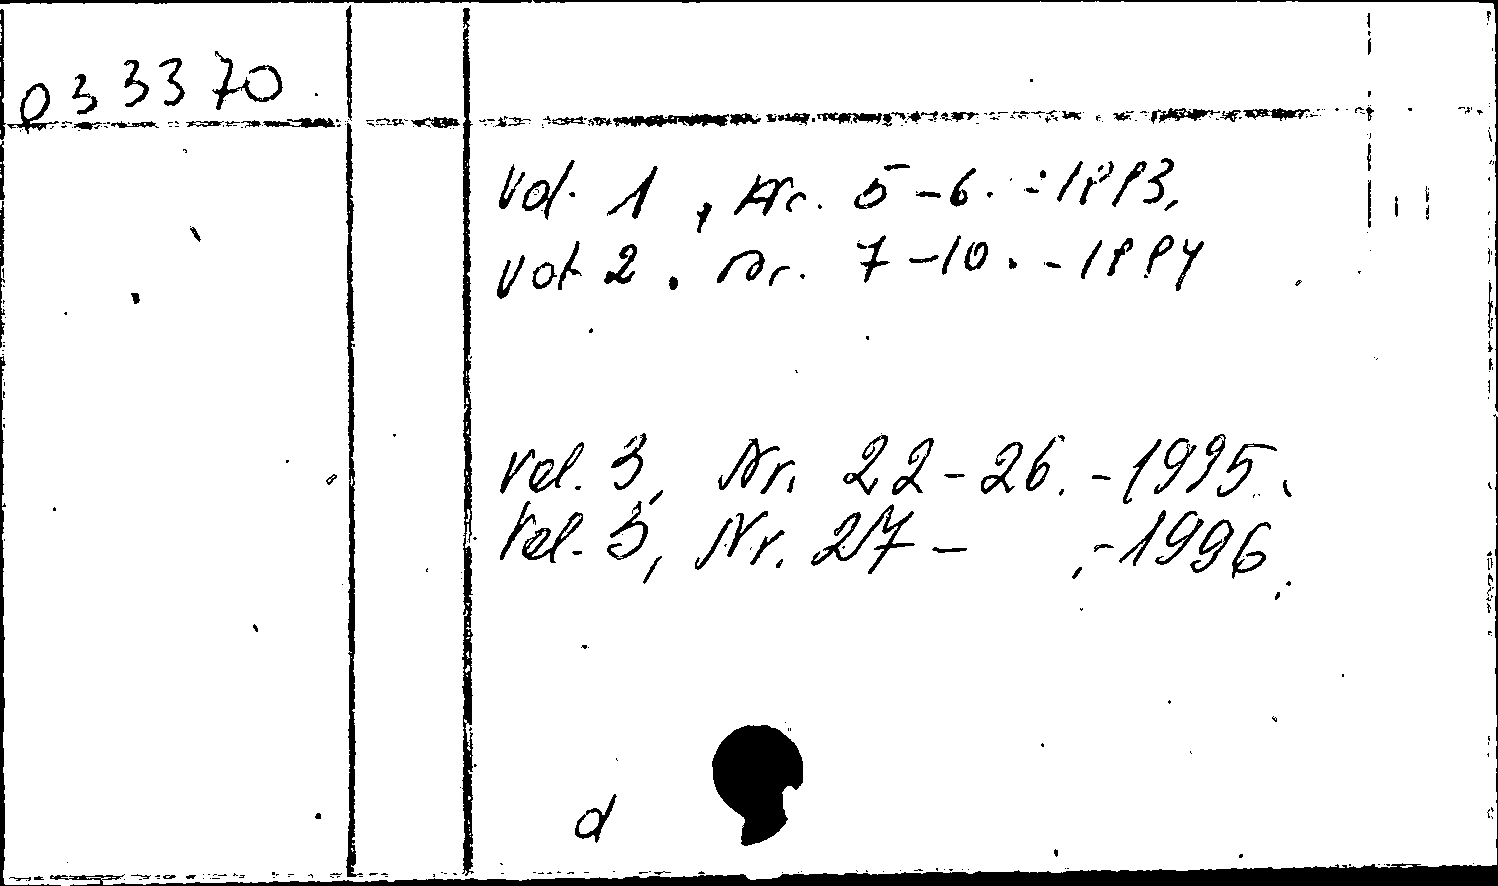 033370
Vol. 1, Nr. 5-6. - 1993.
Vol. 2. Nr. 7-10. - 1994
Vol. 3, Nr. 22-26. - 1995.
Vol. 3, Nr. 27- ,- 1996.
d